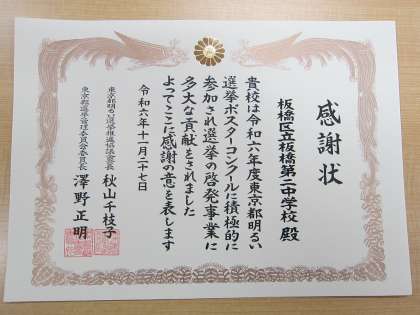 感謝状
板橋区立板橋第二中学校 殿
貴校は令和六年度東京都明るい
選挙ポスターコンクールに積極的に
参加され選挙の啓発事業に
多大な貢献をされました
よってここに感謝の意を表します
令和六年十一月二十七日
東京都明るい選挙推進協議会会長 秋山千枝子
東京都選挙管理委員会委員長 澤野正明